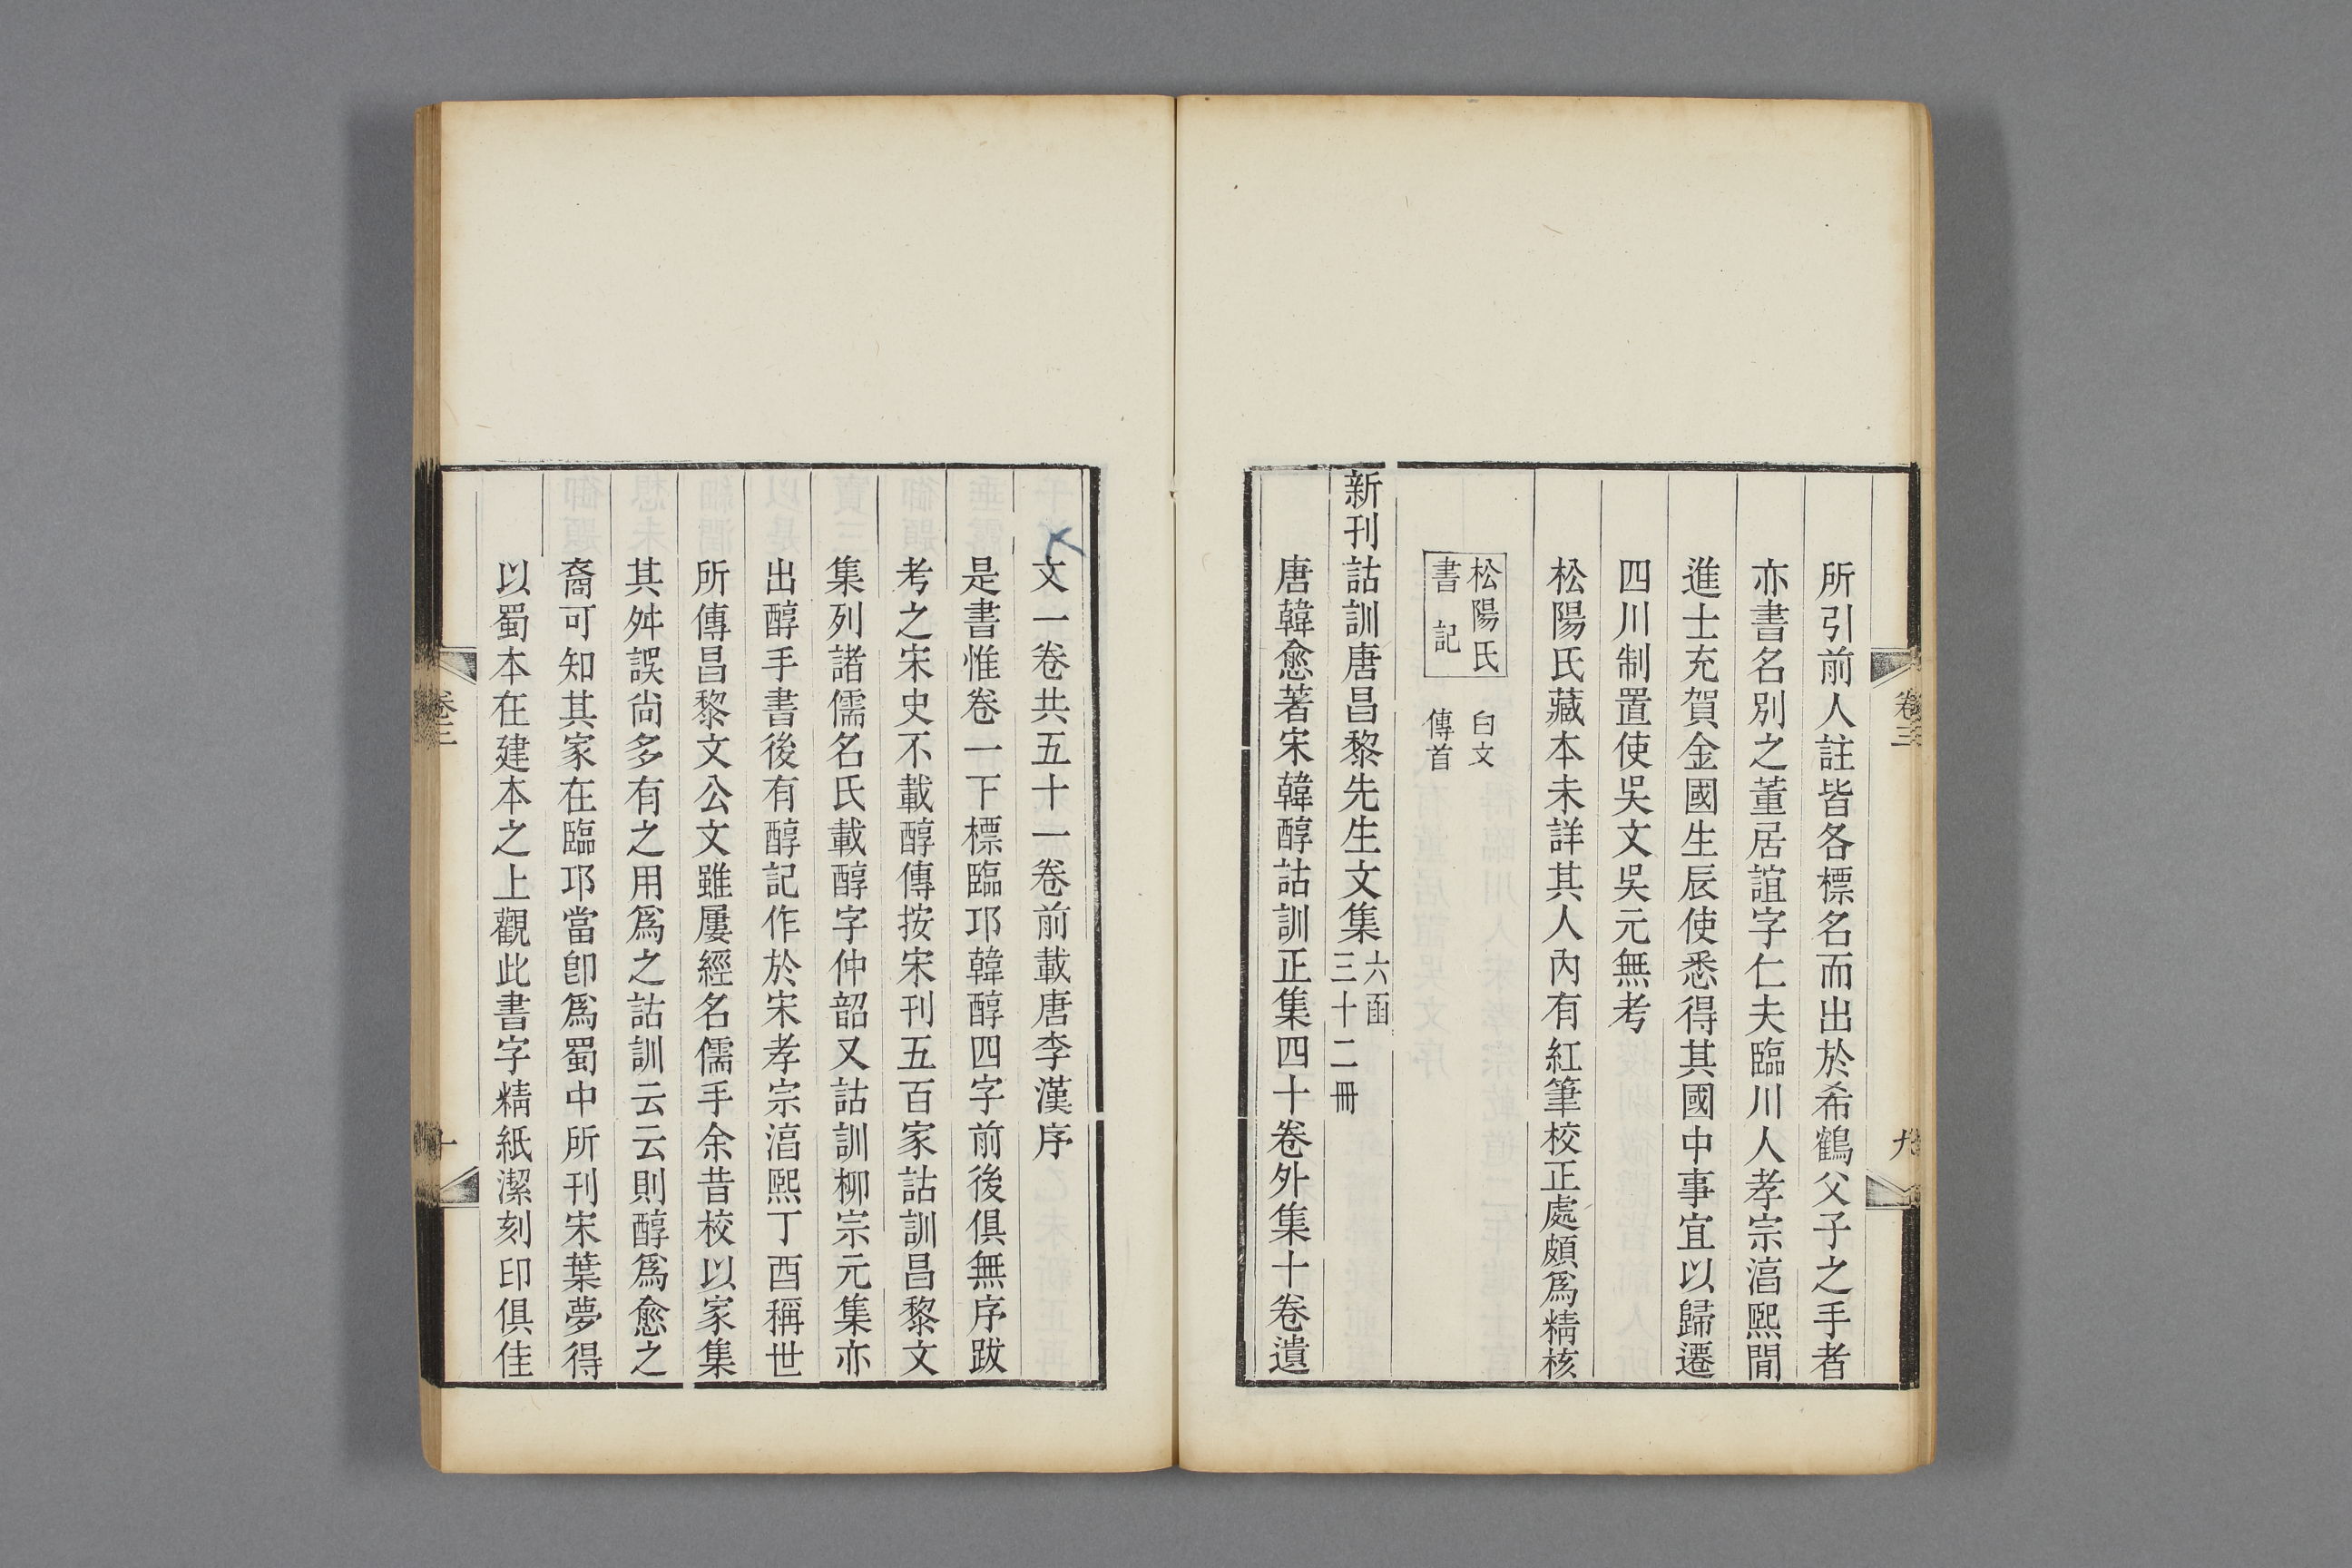 卷三
九
所引前人註皆各標名而出於希鶴父子之手者
亦書名別之董居誼字仁夫臨川人孝宗湻熙閒
進士充賀金國生辰使悉得其國中事宜以歸遷
四川制置使吳文吳元無考
松陽氏藏本未詳其人內有紅筆校正處頗爲精核
松陽氏
書記
白文
傳首
新刊詁訓唐昌黎先生文集六函
三十二冊
唐韓愈著宋韓醇詁訓正集四十卷外集十卷遺
文一卷共五十一卷前載唐李漢序
是書惟卷一下標臨邛韓醇四字前後俱無序跋
考之宋史不載醇傳按宋刊五百家詁訓昌黎文
集列諸儒名氏載醇字仲韶又詁訓柳宗元集亦
出醇手書後有醇記作於宋孝宗湻熙丁酉稱世
所傳昌黎文公文雖屢經名儒手余昔校以家集
其舛誤尙多有之用爲之詁訓云云則醇爲愈之
裔可知其家在臨邛當卽爲蜀中所刊宋葉夢得
以蜀本在建本之上觀此書字精紙潔刻印俱佳
卷三
十